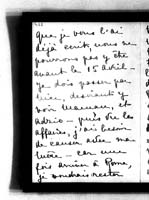 que je vous l'ai
déjà écrit, nous ne
pourrons pas y être
avant le 15 avril.
Je dois passer par
Nice, devient y
voir Maman, et
adzio – près de les
affaires, j'ai besoin
de causer avec ma
mère – car une
fois arrivée à Rome,
je voudrais rester